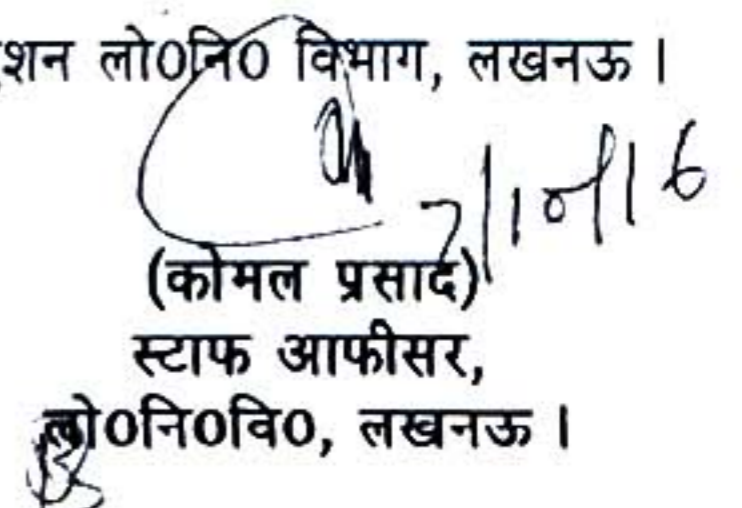 शन लो0नि0 विभाग, लखनऊ ।
7/10/16
(कोमल प्रसाद)
स्टाफ आफीसर,
लो0नि0वि0, लखनऊ ।